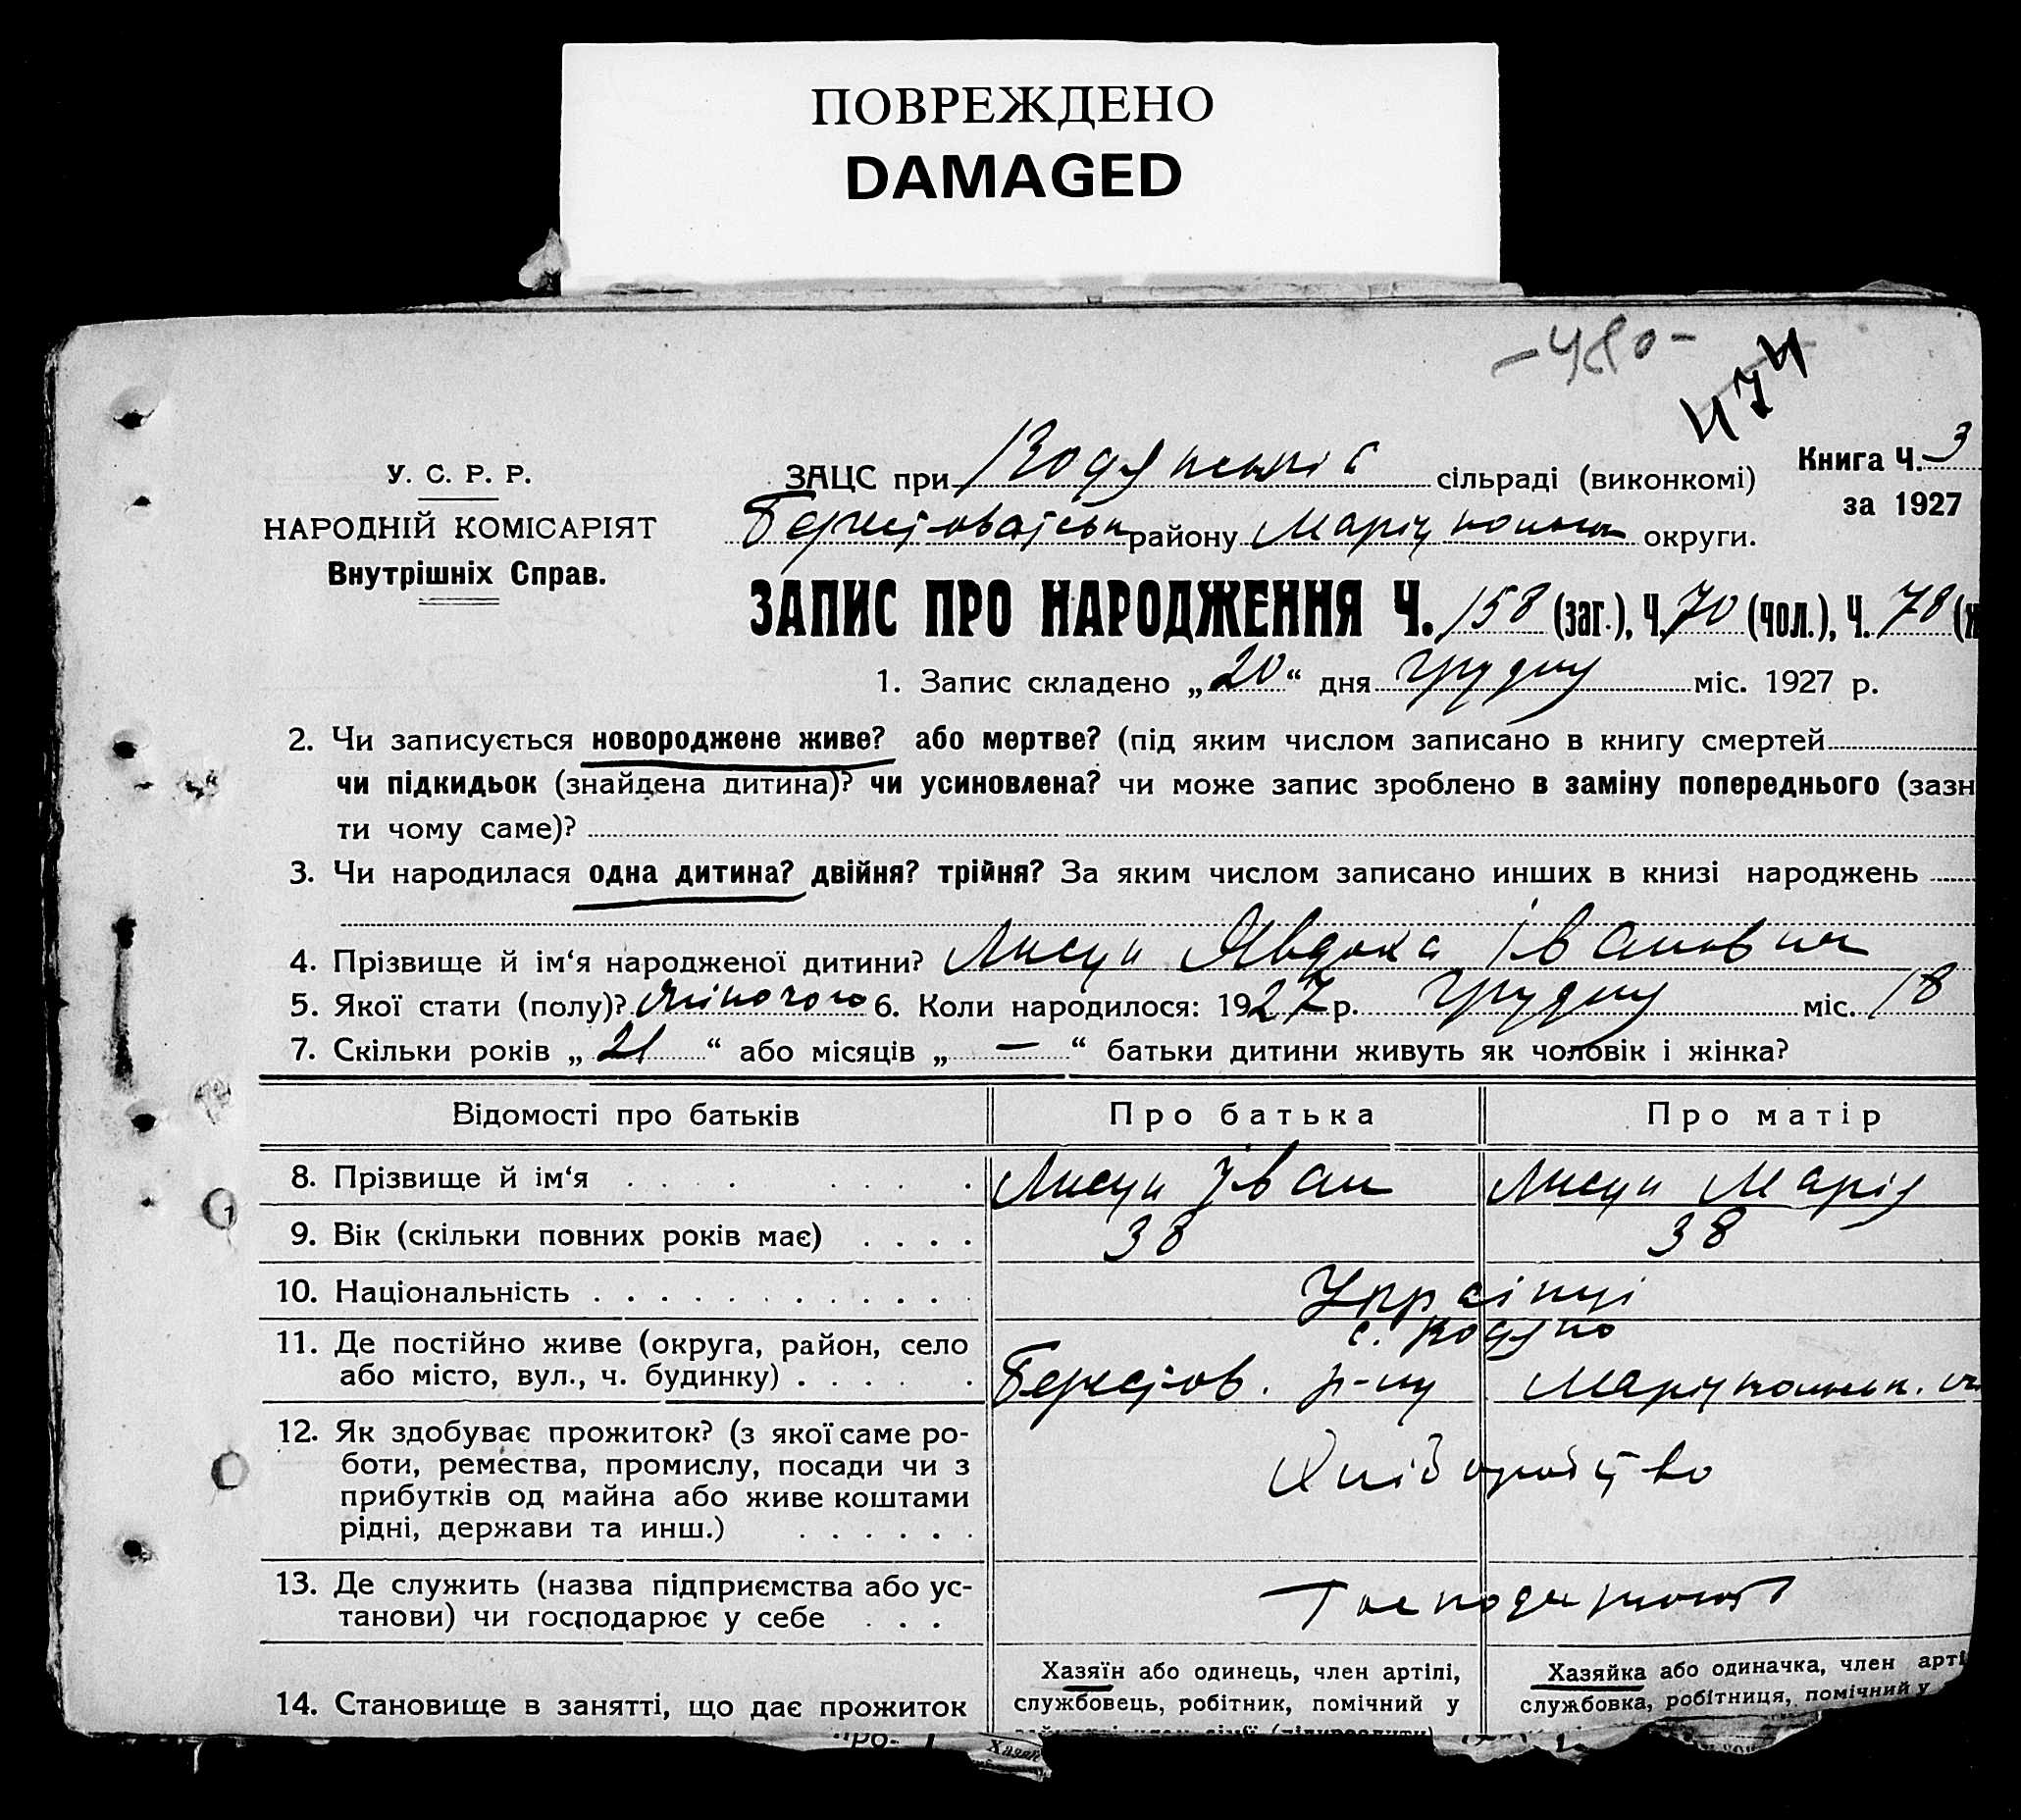 ПОВРЕЖДЕНО
DAMAGED
-480-
474
У. С. Р. Р.
НАРОДНІЙ КОМІСАРІЯТ
Внутрішніх Справ.
ЗАЦС при сільраді (виконкомі)
Книга Ч. 3
за 1927
району округи.
ЗАПИС ПРО НАРОДЖЕННЯ Ч. 158 (заг.), Ч. 70 (чол.), Ч. 78 (ж
1. Запис складено „20“ дня Грудну міс. 1927 р.
2. Чи записується новороджене живе? або мертве? (під яким числом записано в книгу смертей
чи підкидьок (знайдена дитина)? чи усиновлена? чи може запис зроблено в заміну попереднього (зазн
ти чому саме)?
3. Чи народилася одна дитина? двійня? трійня? За яким числом записано инших в книзі народжень
4. Прізвище й ім‘я народженої дитини? Явдоха Івановна
5. Якої стати (полу)? жіночого 6. Коли народилося: 1927 р. Грудну міс. 18
7. Скільки років „21“ або місяців „—“ батьки дитини живуть як чоловік і жінка?
Відомості про батьків Про батька Про матір
8. Прізвище й ім‘я . . . . . . . . Іван Марія
9. Вік (скільки повних років має) . . . . 38 38
10. Національність . . . . . . . . . . . . Українці
11. Де постійно живе (округа, район, село
або місто, вул., ч. будинку) . . . . . Берестов. р-ну Маріупольск.
12. Як здобуває прожиток? (з якої саме ро-
боти, ремества, промислу, посади чи з
прибутків од майна або живе коштами
рідні, держави та инш.) . . . . . .
Хліборобство
13. Де служить (назва підприємства або ус-
танови) чи господарює у себе . . .
14. Становище в занятті, що дає прожиток
Хазяїн або одинець, член артілі,
службовець, робітник, помічний у
Хазяйка або одиначка, член арті
службовка, робітниця, помічний у